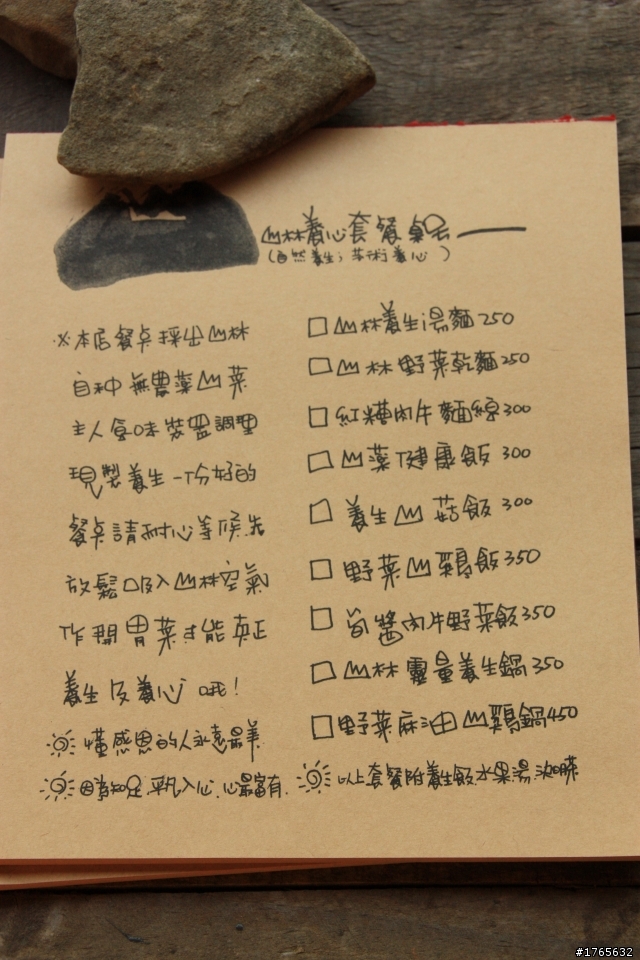 山林養心套餐桌云——
(自然養生；芊術養心)
※本店餐桌採出山林
自种無農藥山菜
主人食味裝盟調理
現製養生一份好的
餐桌請耐心等候先
放鬆口吸入山林空氣
作開胃菜才能真正
養生及養心哦！
懂感恩的人永遠最美
因為知足.平凡入心.心最富有.
□山林養生湯麵250
□山林野菜乾麵250
□紅糟肉片麵線300
□山藥健康飯300
□養生山菇飯300
□野菜山雞飯350
□筍醬肉片野菜飯350
□山林靈量養生鍋350
□野菜麻油山雞鍋450
以上套餐附養生飯水果湯
#1765632